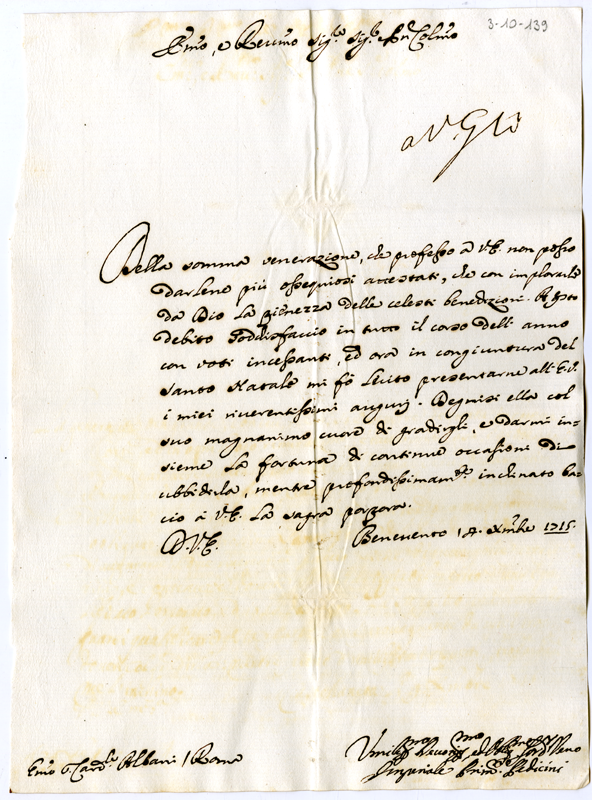 3-10-139
Em̃o, e Reum̃o Sig.re Sig.r Pn̄ Colm̃o
Della somma venerazione, che professo à V.E. non posso
darlene più ossequiosi attestati, che con implorarle
da Dio la pienezza delle celesti benedizioni. A q̃sto
debito soddisfaccio in tutto il corso dell' anno
con voti incessanti, ed ora in congiuntura del
Santo Natale mi fò lecito presentarne all' E.V.
i miei riverentissimi augurj. Degnisi ella col
suo magnanimo cuore di gradirgli, e darmi in-
sieme la fortuna di continue occasioni di
ubbidirla, mentre profondissimam.te inclinato ba-
cio à V.E. la sagra porpora.
D. V. E. Benevento 14. Xm̃bre 1715.
Em̃o S. Card.le Albani / Roma
Vmiliss.mo Deuotiss.mo ed Obl.mo Seru.re Vero
Pedicini